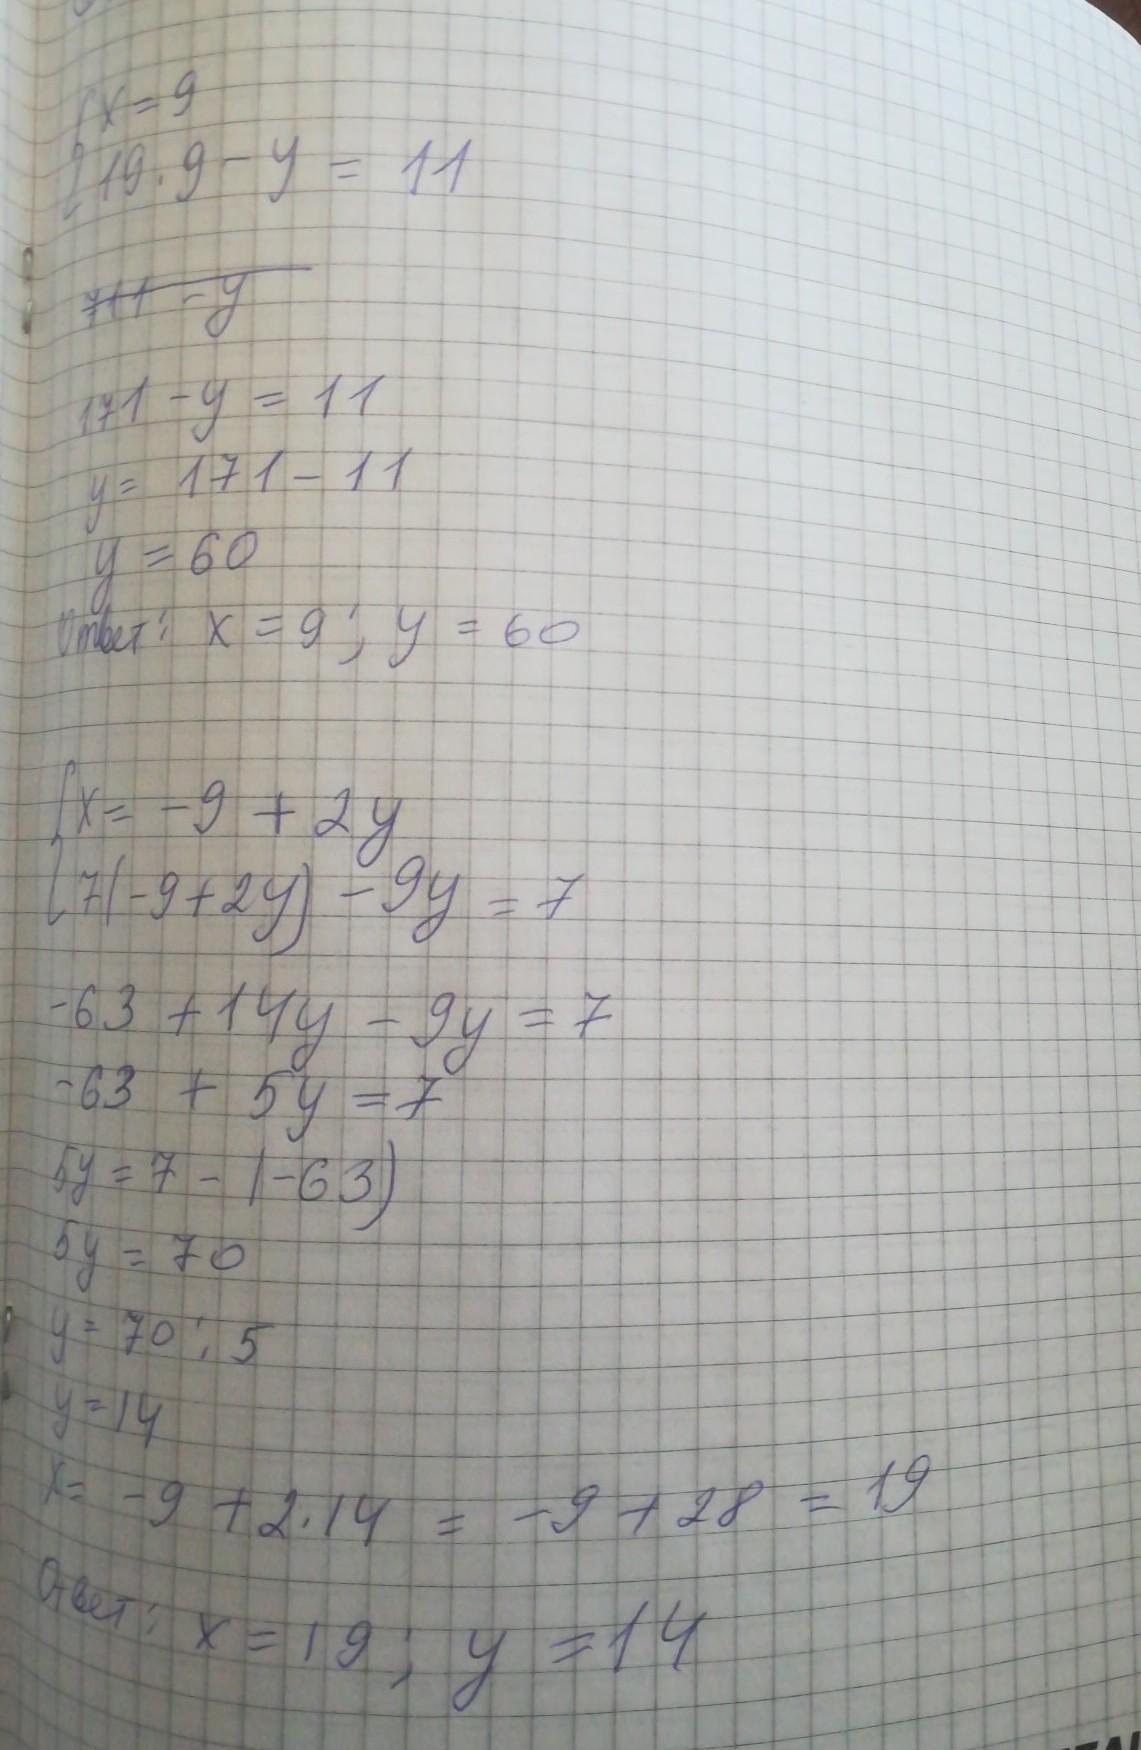 {x = 9
19 · 9 - y = 11
711 - y
171 - y = 11
y = 171 - 11
y = 60
Ответ: x = 9; y = 60
{x = -9 + 2y
7(-9+2y) - 9y = 7
-63 + 14y - 9y = 7
-63 + 5y = 7
5y = 7 - (-63)
5y = 70
y = 70 : 5
y = 14
x = -9 + 2·14 = -9 + 28 = 19
Ответ: x = 19; y = 14